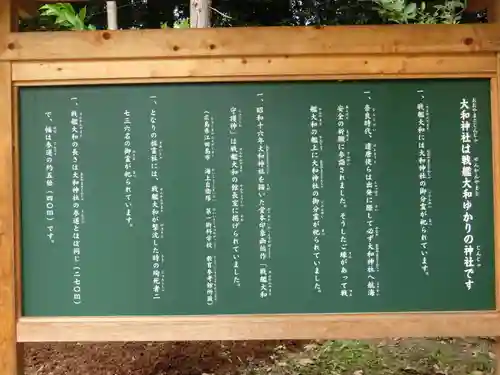 大和神社は戦艦大和ゆかりの神社です
一、戦艦大和には大和神社の御分霊が祀られています。
一、奈良時代、遣唐使らは出発に際して必ず大和神社へ航海
安全の祈願に参詣されました。そうしたご縁があって戦
艦大和の艦上に大和神社の御分霊が祀られていました。
一、昭和十六年大和神社を描いた堂本印象画伯作「戦艦大和
守護神」は戦艦大和の館長室に掲げられていました。
(広島県江田島市 海上自衛隊 第一術科学校 教育参考館所蔵)
一、となりの祖霊社には、戦艦大和が撃沈した時の殉死者二
七三六名の御霊が祀られています。
一、戦艦大和の長さは大和神社の参道とほぼ同じ(二七〇m)
で、幅は参道の約五倍(四〇m)です。